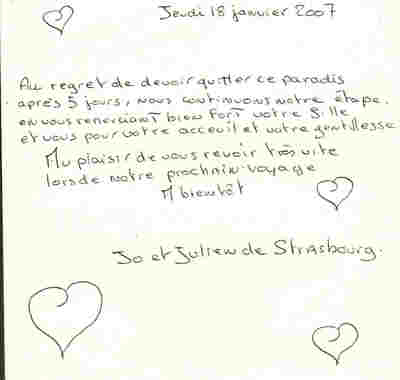 Jeudi 18 janvier 2007
Au regret de devoir quitter ce paradis
après 5 jours, nous continuons notre étape.
en vous remerciant bien fort votre fille
et vous pour votre acceuil et votre gentillesse
Au plaisir de vous revoir très vite
lors de notre prochain voyage
A bientôt
Jo et Julien de Strasbourg.